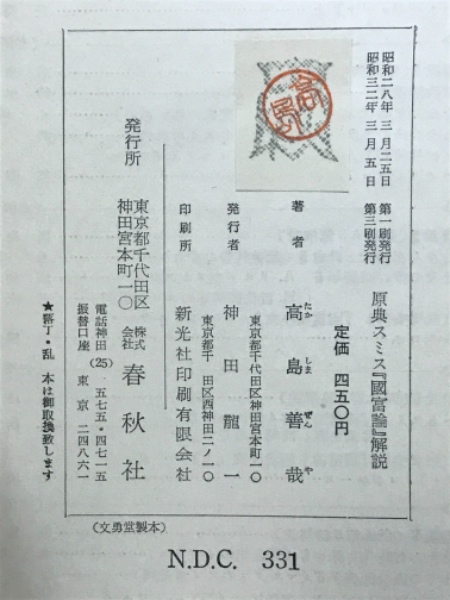 昭和二八年 三月二五日 第一刷発行
昭和三二年 三月五日 第三刷発行
原典スミス『國富論』解説
定価 四五〇円
著者 高島善哉
たか しま ぜん や
東京都千代田区神田宮本町一〇
発行者 神田龍一
東京都千 田区西神田二ノ一〇
印刷所 新光社印刷有限会社
発行所
東京都千代田区
神田宮本町一〇
株式会社 春秋社
電話神田(25) 一五七五・四七一五
振替口座 東京 二四八六一
本は御取換致します
(文勇堂製本)
N.D.C. 331